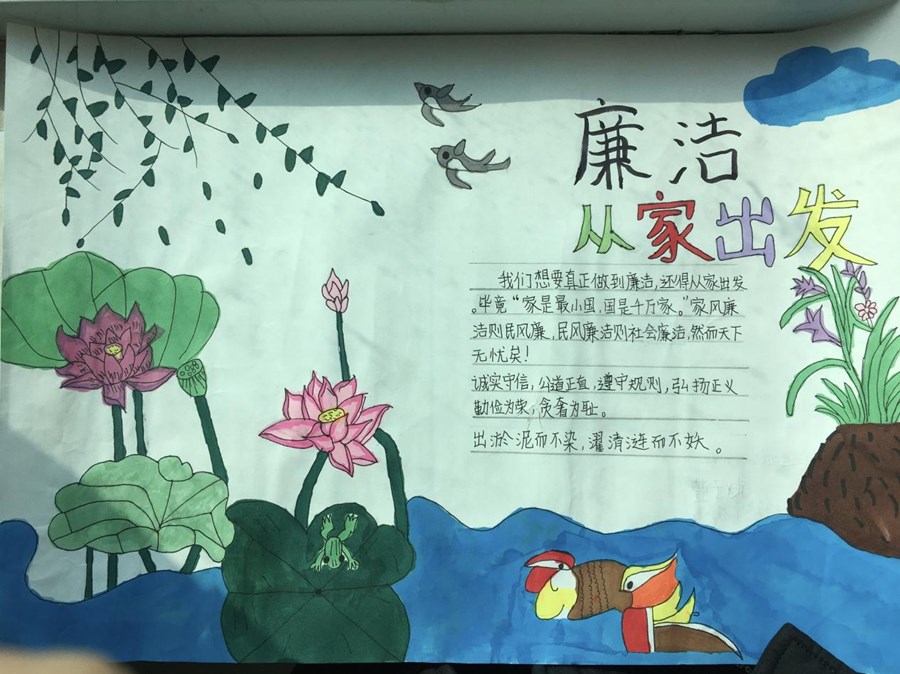 廉洁
从家出发
我们想要真正做到廉洁,还得从家出发
。毕竟“家是最小国,国是千万家。”家风廉
洁则民风廉,民风廉洁则社会廉洁,然而天下
无忧矣!
诚实守信,公道正直,遵守规则,弘扬正义
勤俭为荣,贪奢为耻。
出淤泥而不染,濯清涟而不妖。